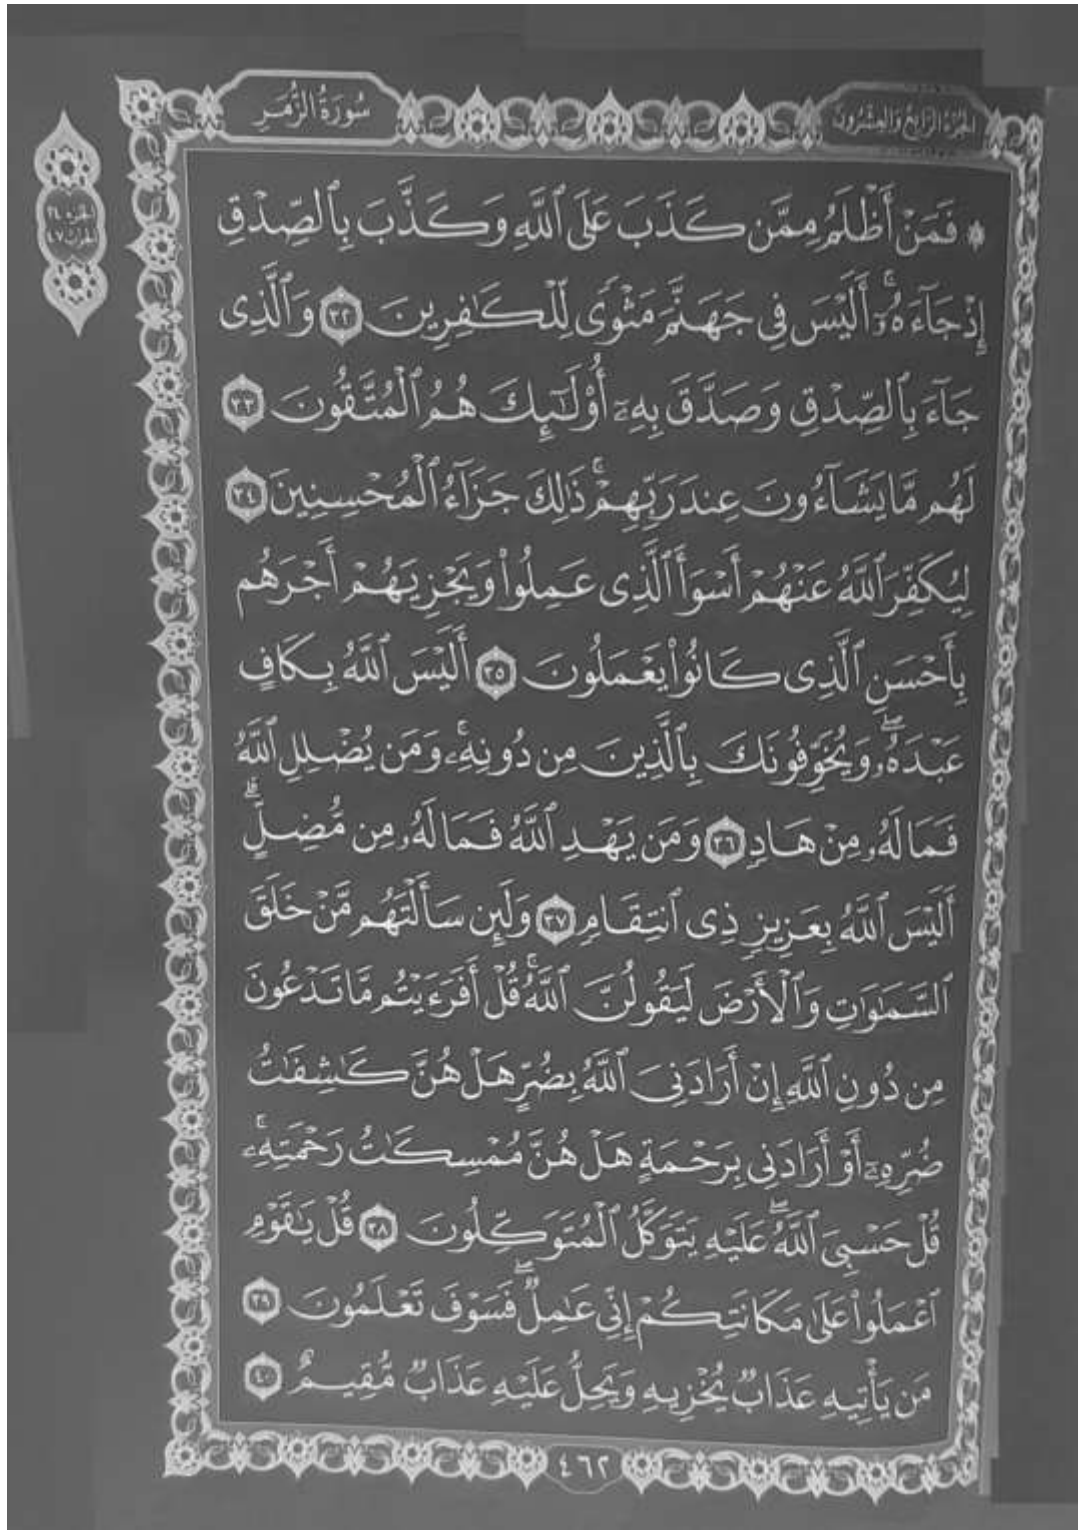 سُورَةُ الزُّمَرِ
الجُزْءُ الرَّابِعُ وَالعِشْرُونَ
الجزء ٢٤
الحزب ٤٧
۞ فَمَنْ أَظْلَمُ مِمَّن كَذَبَ عَلَى ٱللَّهِ وَكَذَّبَ بِٱلصِّدْقِ
إِذْ جَآءَهُۥٓۚ أَلَيْسَ فِى جَهَنَّمَ مَثْوًى لِّلْكَـٰفِرِينَ ٣٢ وَٱلَّذِى
جَآءَ بِٱلصِّدْقِ وَصَدَّقَ بِهِۦٓ أُو۟لَـٰٓئِكَ هُمُ ٱلْمُتَّقُونَ ٣٣
لَهُم مَّا يَشَآءُونَ عِندَ رَبِّهِمْۚ ذَٰلِكَ جَزَآءُ ٱلْمُحْسِنِينَ ٣٤
لِيُكَفِّرَ ٱللَّهُ عَنْهُمْ أَسْوَأَ ٱلَّذِى عَمِلُوا۟ وَيَجْزِيَهُمْ أَجْرَهُم
بِأَحْسَنِ ٱلَّذِى كَانُوا۟ يَعْمَلُونَ ٣٥ أَلَيْسَ ٱللَّهُ بِكَافٍ
عَبْدَهُۥۖ وَيُخَوِّفُونَكَ بِٱلَّذِينَ مِن دُونِهِۦۚ وَمَن يُضْلِلِ ٱللَّهُ
فَمَا لَهُۥ مِنْ هَادٍ ٣٦ وَمَن يَهْدِ ٱللَّهُ فَمَا لَهُۥ مِن مُّضِلٍّۗ
أَلَيْسَ ٱللَّهُ بِعَزِيزٍ ذِى ٱنتِقَامٍ ٣٧ وَلَئِن سَأَلْتَهُم مَّنْ خَلَقَ
ٱلسَّمَـٰوَٰتِ وَٱلْأَرْضَ لَيَقُولُنَّ ٱللَّهُۚ قُلْ أَفَرَءَيْتُم مَّا تَدْعُونَ
مِن دُونِ ٱللَّهِ إِنْ أَرَادَنِىَ ٱللَّهُ بِضُرٍّ هَلْ هُنَّ كَـٰشِفَـٰتُ
ضُرِّهِۦٓ أَوْ أَرَادَنِى بِرَحْمَةٍ هَلْ هُنَّ مُمْسِكَـٰتُ رَحْمَتِهِۦۚ
قُلْ حَسْبِىَ ٱللَّهُۖ عَلَيْهِ يَتَوَكَّلُ ٱلْمُتَوَكِّلُونَ ٣٨ قُلْ يَـٰقَوْمِ
ٱعْمَلُوا۟ عَلَىٰ مَكَانَتِكُمْ إِنِّى عَـٰمِلٌۖ فَسَوْفَ تَعْلَمُونَ ٣٩
مَن يَأْتِيهِ عَذَابٌ يُخْزِيهِ وَيَحِلُّ عَلَيْهِ عَذَابٌ مُّقِيمٌ ٤٠
٤٦٢